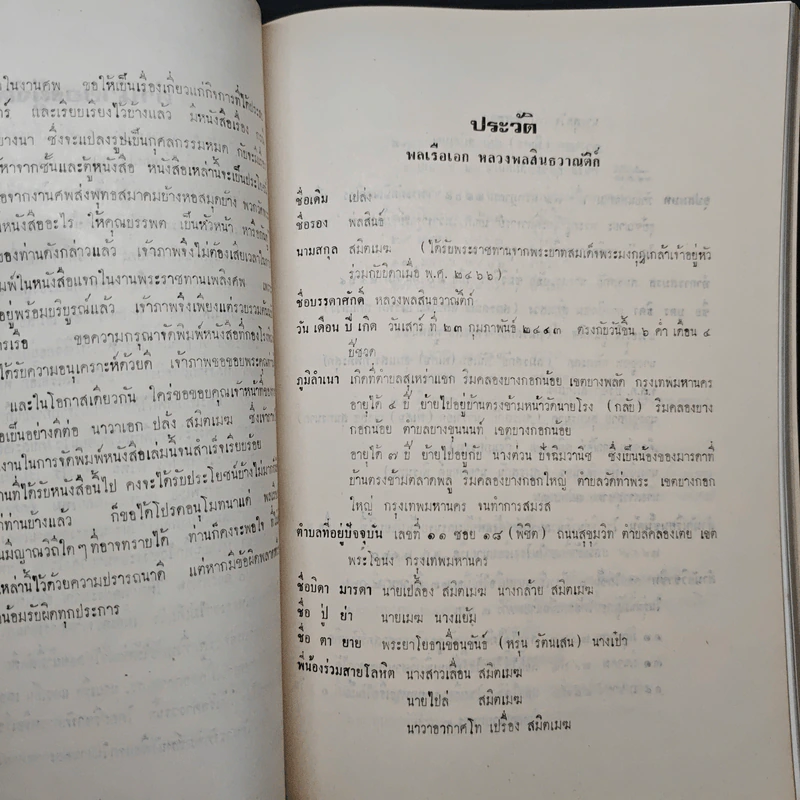 ในงานศพ ขอให้เป็นเรื่องเกี่ยวแก่กิจการที่ได้
และเรียบเรียงไว้บ้างแล้ว มีหนังสือเรื่อง
บางนา ซึ่งจะแปลงรูปเป็นกุศลกรรมหมด
หาจากชั้นและตู้หนังสือ หนังสือเหล่านี้จะเป็น
จากงานศพส่งพุทธสมาคมบ้างหอสมุดบ้าง
หนังสืออะไร ให้คุณบรรพต เป็นหัวหน้า
ของท่านดังกล่าวแล้ว เจ้าภาพจึงไม่ต้องเสียเวลา
พิมพ์ในหนังสือแจกในงานพระราชทานเพลิงศพ
อยู่พร้อมบริบูรณ์แล้ว เจ้าภาพจึงเพียงแต่รวบรวม
ขอความกรุณาจัดพิมพ์หนังสือที่
ได้รับความอนุเคราะห์ด้วยดี เจ้าภาพขอขอบพระคุณ
และในโอกาสเดียวกัน ใคร่ขอขอบคุณเจ้าหน้าที่
เป็นอย่างดีต่อ นาวาเอก ปลั่ง สมิตเมฆ
งานในการจัดพิมพ์หนังสือเล่มนี้จนสำเร็จเรียบร้อย
ที่ได้รับหนังสือนี้ไป คงจะได้รับประโยชน์บ้างไม่มาก
ท่านบ้างแล้ว ก็ขอได้โปรดอนุโมทนาแด่
มีญาณวิถีใดๆที่อาจทราบได้ ท่านก็คงจะพอใจ
เหล่านี้ไว้ด้วยความปรารถนาดี แต่หากมีข้อผิดพลาด
น้อมรับผิดทุกประการ
ประวัติ
พลเรือเอก หลวงพลสินธวาณัติก์
ชื่อเดิม เปล่ง
ชื่อรอง พลสินธุ์
นามสกุล สมิตเมฆ (ได้รับพระราชทานจากพระบาทสมเด็จพระมงกุฎเกล้าเจ้าอยู่หัว
ร่วมกับบิดาเมื่อ พ.ศ. ๒๔๖๖)
ชื่อบรรดาศักดิ์ หลวงพลสินธวาณัติก์
วัน เดือน ปี เกิด วันเสาร์ ที่ ๒๓ กุมภาพันธ์ ๒๔๔๓ ตรงกับวันขึ้น ๖ ค่ำ เดือน ๔
ปีชวด
ภูมิลำเนา เกิดที่ตำบลสุเหร่าแขก ริมคลองบางกอกน้อย เขตบางพลัด กรุงเทพมหานคร
อายุได้ ๔ ปี ย้ายไปอยู่บ้านตรงข้ามหน้าวัดนายโรง (กลับ) ริมคลองบาง
กอกน้อย ตำบลบางขุนนนท์ เขตบางกอกน้อย
อายุได้ ๗ ปี ย้ายไปอยู่กับ นางด่วน ปัจฉิมวานิช ซึ่งเป็นน้องของมารดาที่
บ้านตรงข้ามตลาดพลู ริมคลองบางกอกใหญ่ ตำบลวัดท่าพระ เขตบางกอก
ใหญ่ กรุงเทพมหานคร จนทำการสมรส
ตำบลที่อยู่ปัจจุบัน เลขที่ ๑๑ ซอย ๑๘ (พิชิต) ถนนสุขุมวิท ตำบลคลองเตย เขต
พระโขนง กรุงเทพมหานคร
ชื่อบิดา มารดา นายเปลื้อง สมิตเมฆ นางกล้วย สมิตเมฆ
ชื่อ ปู่ ย่า นายเมฆ นางแย้ม
ชื่อ ตา ยาย พระยาโยธาเขื่อนขันธ์ (หรุ่น รัตนเสน) นางเป้า
พี่น้องร่วมสายโลหิต นางสาวเลื่อน สมิตเมฆ
นายไปล่ สมิตเมฆ
นาวาอากาศโท เปรื่อง สมิตเมฆ